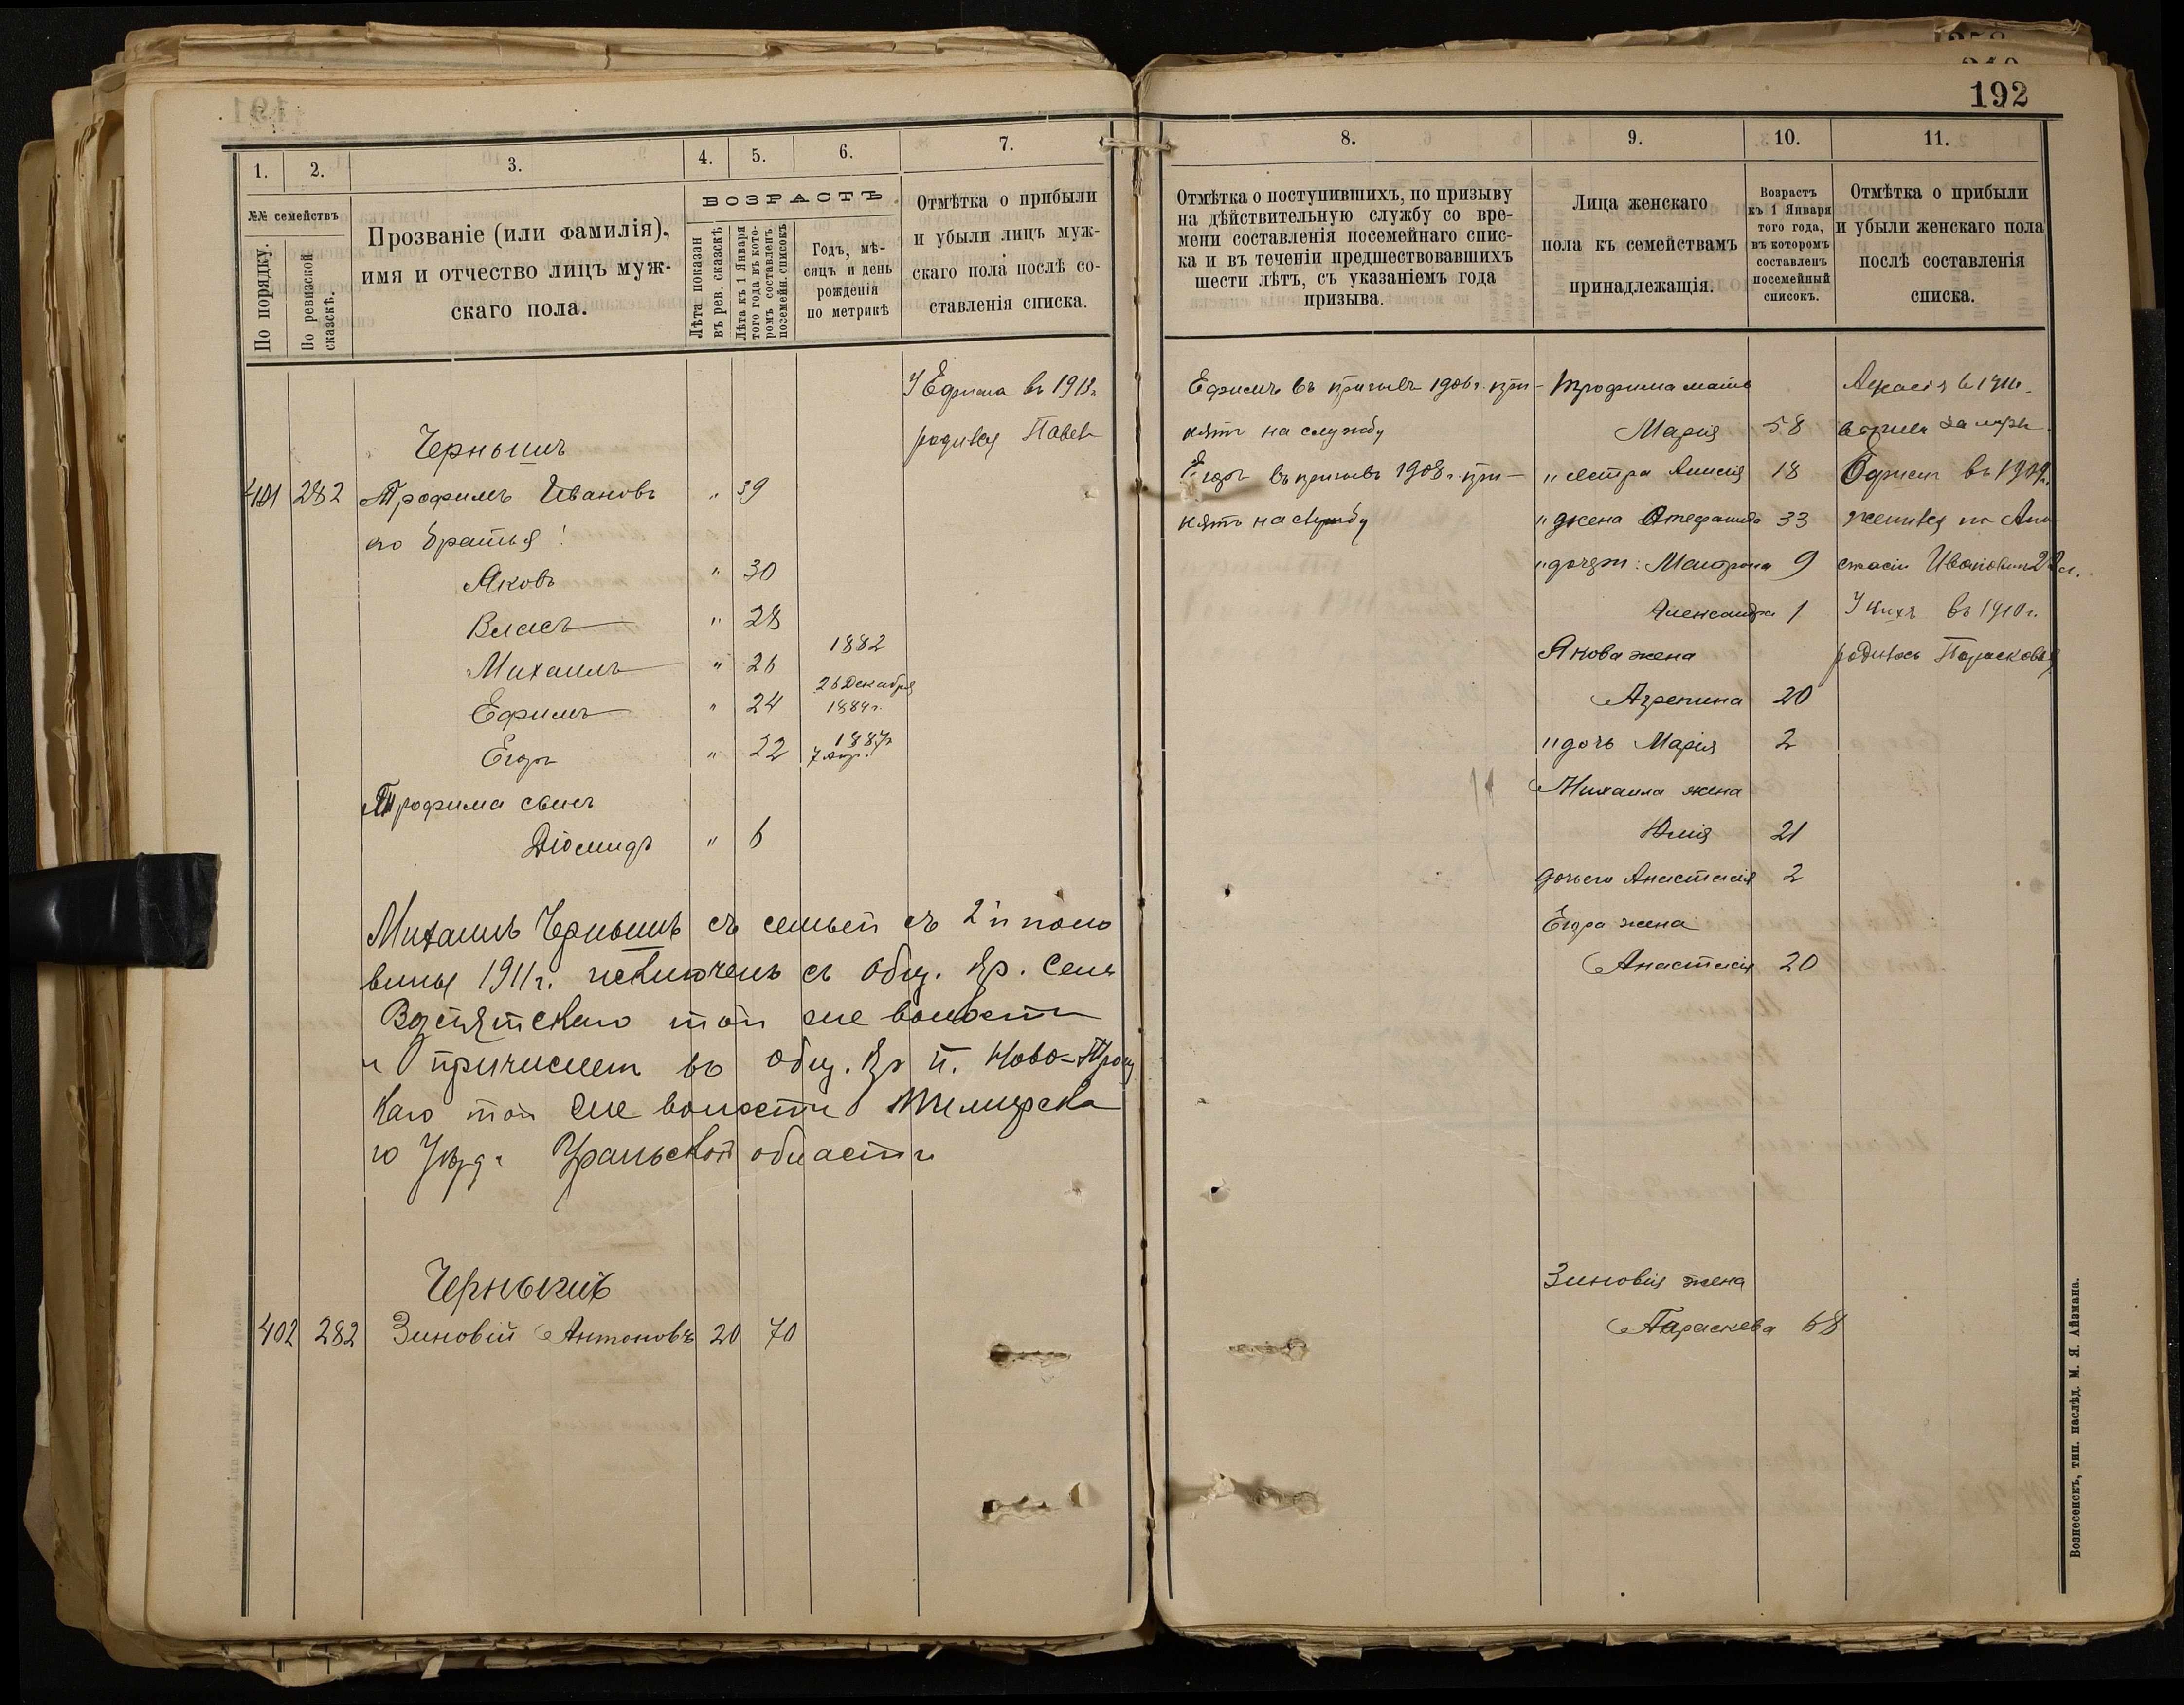 192
1.
2.
3.
4.
5.
6.
7.
№№ семействъ
По порядку.
По ревизской сказскѣ.
Прозваніе (или фамилія),
имя и отчество лицъ муж-
скаго пола.
ВОЗРАСТЪ
Лѣта показан
въ рев. сказскѣ
Лѣта къ 1 Января
того года въ кото-
ромъ составленъ
посемейн. списокъ
Годъ, мѣ-
сяцъ и день
рожденія
по метрикѣ
Отмѣтка о прибыли
и убыли лицъ муж-
скаго пола послѣ со-
ставленія списка.
У Ефима въ 1913г.
родився Павелъ
Чернышъ
401 282 Трофимъ Ивановъ " 39
его братья:
Яковъ " 30
Власъ " 28
Михаилъ " 26 1882
Ефимъ " 24 26 Декабря 1884г.
Егоръ " 22 1887г. 7 апр.
Трофима сынъ
Діомидъ " 6
Михаилъ Чернышъ съ семьей съ 2й поло
вины 1911г. исключенъ съ общ. кр. села
той же волости
и причисленъ въ общ. кр п. Ново-Троиц
каго той же волости Темирска
го Уѣзда Уральской области
Чернышъ
402 282 Зиновій Антоновъ 20 70
8.
9.
10.
11.
Отмѣтка о поступившихъ, по призыву
на дѣйствительную службу со вре-
мени составленія посемейнаго спис-
ка и въ теченіи предшествовавшихъ
шести лѣтъ, съ указаніемъ года
призыва.
Лица женскаго
пола къ семействамъ
принадлежащія.
Возрастъ
къ 1 Января
того года,
въ которомъ
составленъ
посемейный
списокъ.
Отмѣтка о прибыли
и убыли женскаго пола
послѣ составленія
списка.
Ефимъ въ призывъ 1906 г. при-
нятъ на службу
Егоръ въ призывъ 1908 г. при-
нятъ на службу
Трофима мать
Марія 58
" сестра 18
" жена Стефанида 33
" дочери: Матрона 9
Александра 1
Якова жена
Агрепина 20
" дочь Марія 2
Михаила жена
Юлія 21
дочь его Анастасія 2
Егора жена
Анастасія 20
въ 1911г.
вышла за мужъ
Ефимъ въ 1909г.
женився на Ана
стасіи Ивановнѣ 22 л.
У нихъ въ 1910г.
родилась Парасковія
Зиновія жена
Параскева 68
Вознесенскъ, тип. наслѣд. М. Я. Айзмана.